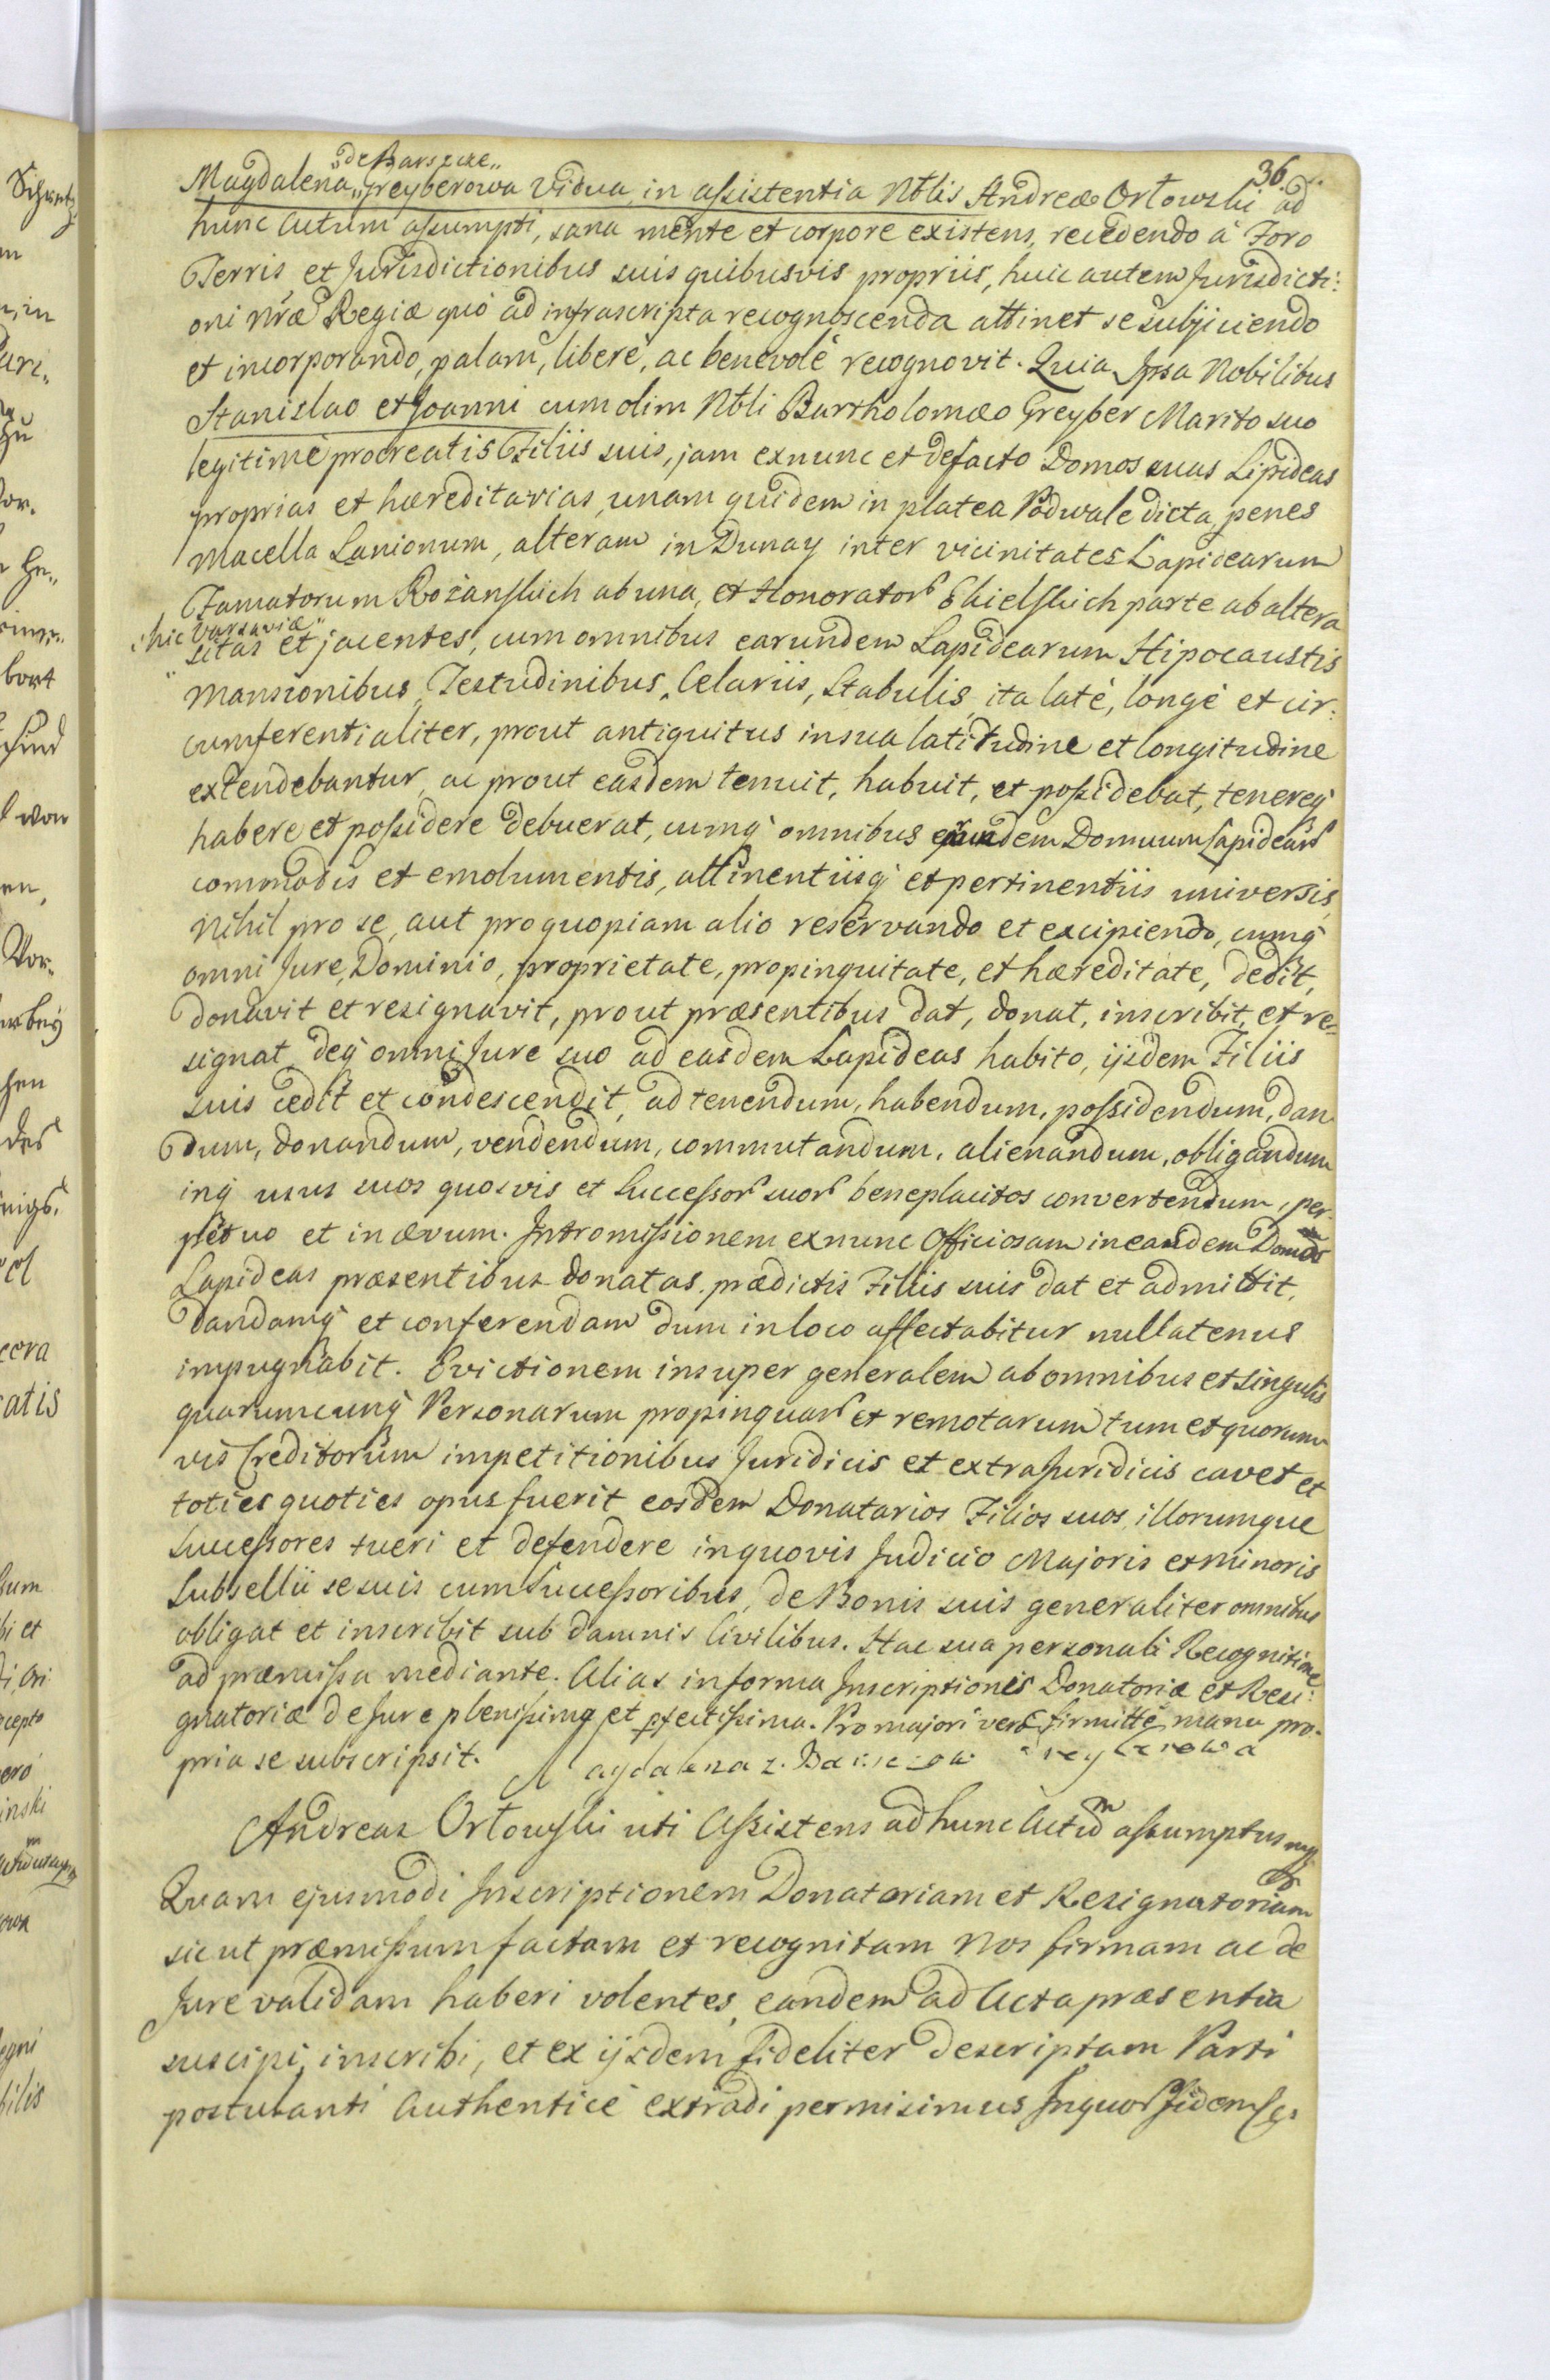 36.
„de Barszcze„
Magdalena „Greyberowa Vidua in assistentia Nblis Andreæ Orłowski ad
hunc Actum assumpti, sana mente et corpore existens, recedendo à Foro
Terris et Jurisdictionibus suis quibusvis propriis, huic autem Jurisdicti:
oni nræ Regiæ quò ad infrascripta recognoscenda attinet se subjiciendo
et incorporando, palam, liberè, ac benevolè recognovit. Quia Ipsa Nobilibus
Stanislao et Joanni cum olim Nbli Bartholomæo Greyber Marito suo
legitimè procreatis Filiis suis, jam exnunc et defacto Domos suas Lipideas
proprias et hæreditarias, unam quidem in platea Podwale dicta, penes
Macella Lanionum, alteram in Dunay inter vicinitates Lapidearum
Famatorum Rożanskich ab una, et Honorator Chielskich parte ab altera
hic Varsaviæ„
sitas et jacentes, cum omnibus earundem Lapidearum Hipocaustis
Mansionibus, Testudinibus, Celariis, Stabulis ita latè, longè et cir:
cumferentialiter, prout antiquitus in sua latitudine et longitudine
extendebantur, ac prout easdem tenuit, habuit, et possidebat, tenereq
habere et possidere debuerat, cumq omnibus earundem Domuum Lapidear
commodis et emolumentis, attinentiisq et pertinentiis universis
Nihil pro se, aut pro quopiam alio reservando et excipiendo, cumq
omni Jure, Dominio, proprietate, propinquitate, et hæreditate, dedit,
donavit et resignavit, prout præsentibus dat, donat, inscribit, et re=
signat, deq omni Jure suo ad easdem Lapideas habito, ijsdem Filiis
suis cedit et condescendit, ad tenendum, habendum, possidendum, dan
dum, donandum, vendendum, commutandum, alienandum, obligandum
inq usus suos quosvis et Successor suor beneplacitos convertendum, per-
petuo et in ævum. Intromissionem exnunc Officiosam in easdem Domos
Lapideas præsentibus donatas prædictis Filiis suis dat et admittit,
dandamq et conferendam dum in loco affectabitur nullatenus
impugnabit. Evictionem insuper generalem ab omnibus et singulis
quarumcunq Personarum propinquar et remotarum tum et quorum
vis Creditorum impetitionibus Juridicis et extraJuridicis cavet et
toties quoties opus fuerit eosdem Donatarios Filios suos, illorumque
Successores tueri et defendere in quovis Judicio Majoris et minoris
Subsellii se suis cum Successoribus, de Bonis suis generaliter omnibus
obligat et inscribit sub damnis Civilibus. Hac sua personali Recognitione
ad præmissa mediante. Alias in forma Inscriptionis Donatoriæ et Resi:
gnatoriæ de Jure plenissima et pfectissima. Pro majori verò firmitte manu pro-
pria se subscripsit. Magdalena z. Greyberowa
Andreas Orłowski uti Assistens ad hunc Actum assumptus mp
Quam ejusmodi Inscriptionem Donatoriam et Resignatoriam
sic ut præmissum factam et recognitam Nos firmam ac de
Jure validam haberi volentes, eandem ad Acta præsentia
suscipi, inscribi, et ex ijsdem fideliter descriptam Parti
postulanti Authenticè extradi permisimus In quor Fidem